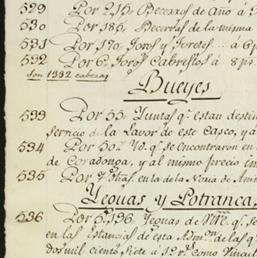 529 Por 215 Becerros de Año á
530 Por 185 Becerros de la misma
531 Por 170 Toros y Toretes á 6 p
532 Por 6 Toros Cabrestos á 8 ps.
Son 1992 cabezas
Bueyes
533 Por 55 Yuntas qe. estan
Servicio de la Lavor de este Casco, y á
534 Por 50 Yd. qe. se encontraron en
de Corabonga, y al mismo precio
535 Por en la de la Noria de
Yeguas y Potrancas
536 Por 5,196 Yeguas de qe. se
en las estancias de esta Admon. de las q
dos mil ciento siete á como